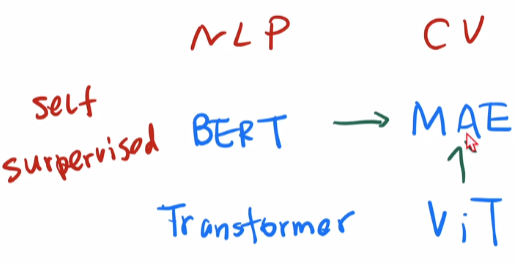 NLP CV
self
surpervised BERT → MAE
↑
Transformer ViT